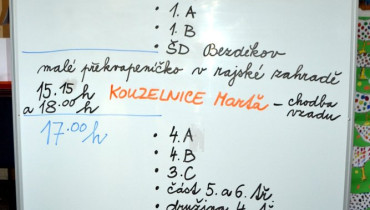 • 1. A
• 1. B
• ŠD Bezděkov
malé překvapeníčko v rajské zahradě
15.15 h
a 18.00 h
KOUZELNICE Marťa – chodba vzadu
17.00 h
• 4. A
• 4. B
• 3. C
• část 5. a 6. tř.
• družina 4. tř.